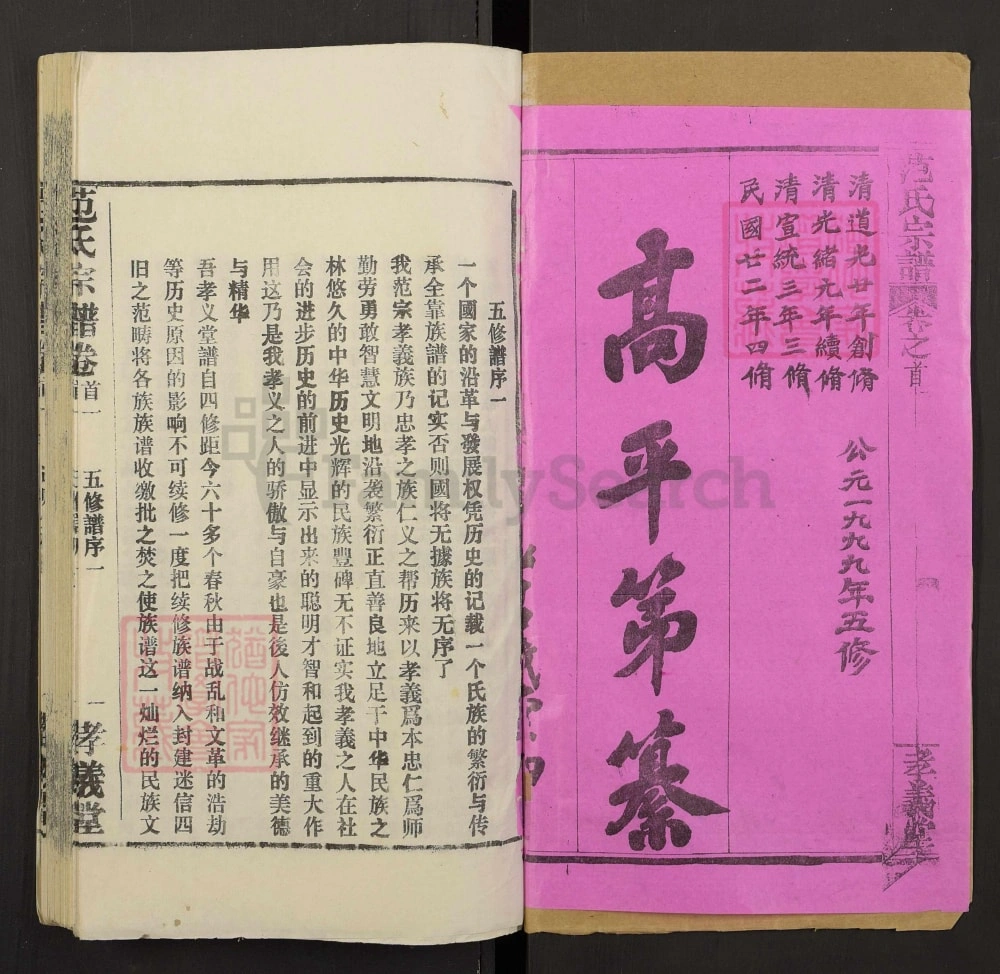 范氏宗譜
卷之首
孝義堂
清道光廿年創脩
清光緒元年續脩
清宣統三年三脩
民國廿二年四脩
公元一九九九年五修
高平第纂
五修譜序一
一个國家的沿革与發展权凭历史的记载一个氏族的繁衍与传
承全靠族譜的记实否则國将无據族将无序了
我范宗孝義族乃忠孝之族仁义之帮历来以孝義爲本忠仁爲师
勤劳勇敢智慧文明地沿袭繁衍正直善良地立足于中华民族之
林悠久的中华历史光辉的民族豐碑无不证实我孝義之人在社
会的进步历史的前进中显示出来的聪明才智和起到的重大作
用这乃是我孝义之人的骄傲与自豪也是後人仿效继承的美德
与精华
吾孝义堂譜自四修距今六十多个春秋由于战乱和文革的浩劫
等历史原因的影响不可续修一度把续修族谱纳入封建迷信四
旧之范畴将各族族谱收缴批之焚之使族谱这一灿烂的民族文
范氏宗譜卷首一
五修譜序一
一
孝義堂
FamilySearch